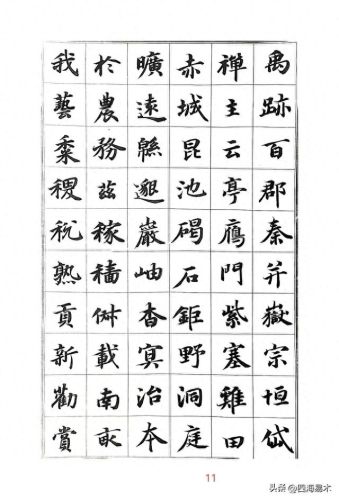 禹跡百郡秦并嶽宗恒岱
禪主云亭鴈門紫塞雞田
赤城昆池碣石鉅野洞庭
曠遠緜邈巖岫杳冥治本
於農務茲稼穡俶載南畝
我藝黍稷稅熟貢新勸賞
11
头条 @四海易木